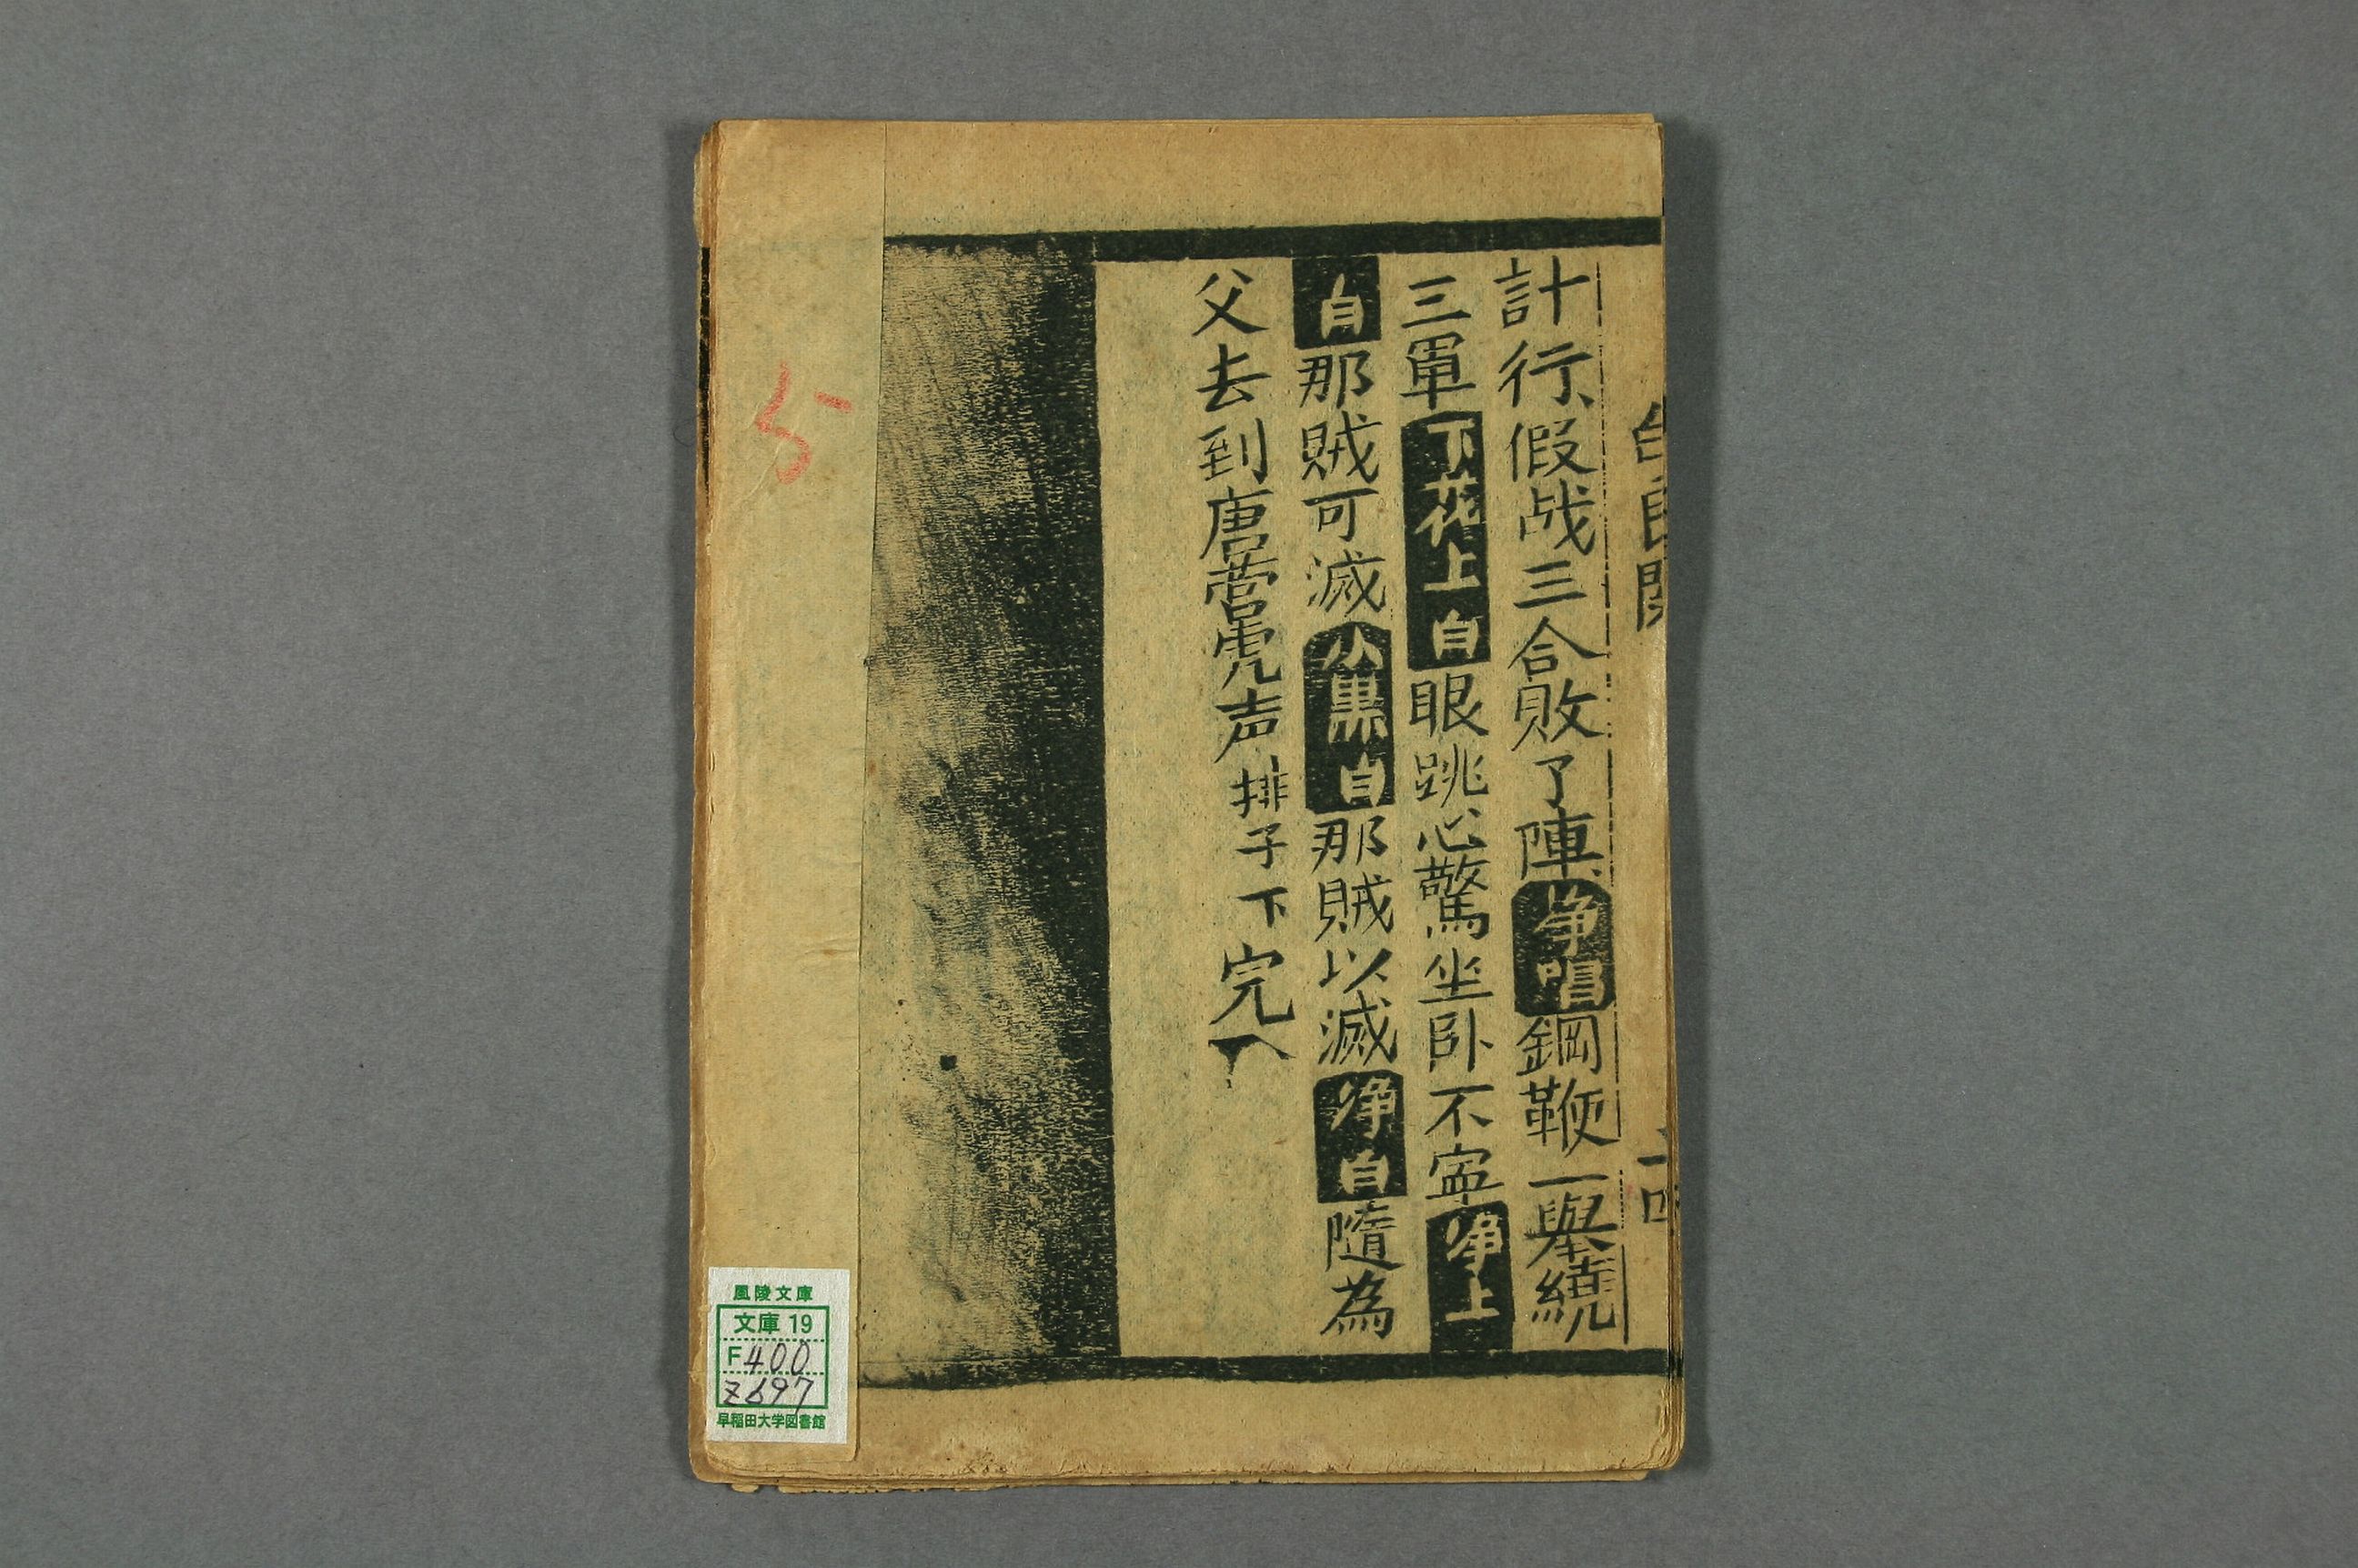 計行假战三合敗了陣净唱鋼鞭一舉繞
三軍下花上白眼跳心驚坐卧不寕净上
白那賊可滅小黒白那賊以滅净白隨為
父去到唐营虎声排子下完
风陵文庫
文庫 19
F400
Z697
早稲田大学図書館